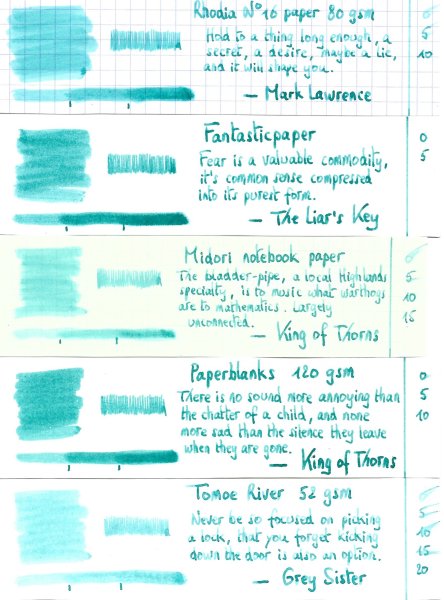 Rhodia N°16 paper 80 gsm
Hold to a thing long enough, a
secret, a desire, maybe a lie,
and it will shape you.
— Mark Lawrence
0
5
10
Fantasticpaper
Fear is a valuable commodity,
it's common sense compressed
into its purest form.
— The Liar's Key
0
5
Midori notebook paper
The bladder-pipe, a local Highlands
specialty, is to music what warthogs
are to mathematics. Largely
unconnected.
— King of Thorns
0
5
10
15
Paperblanks 120 gsm
There is no sound more annoying than
the chatter of a child, and none
more sad than the silence they leave
when they are gone.
— King of Thorns
0
5
10
Tomoe River 52 gsm
Never be so focused on picking
a lock, that you forget kicking
down the door is also an option.
— Grey Sister
5
10
15
20